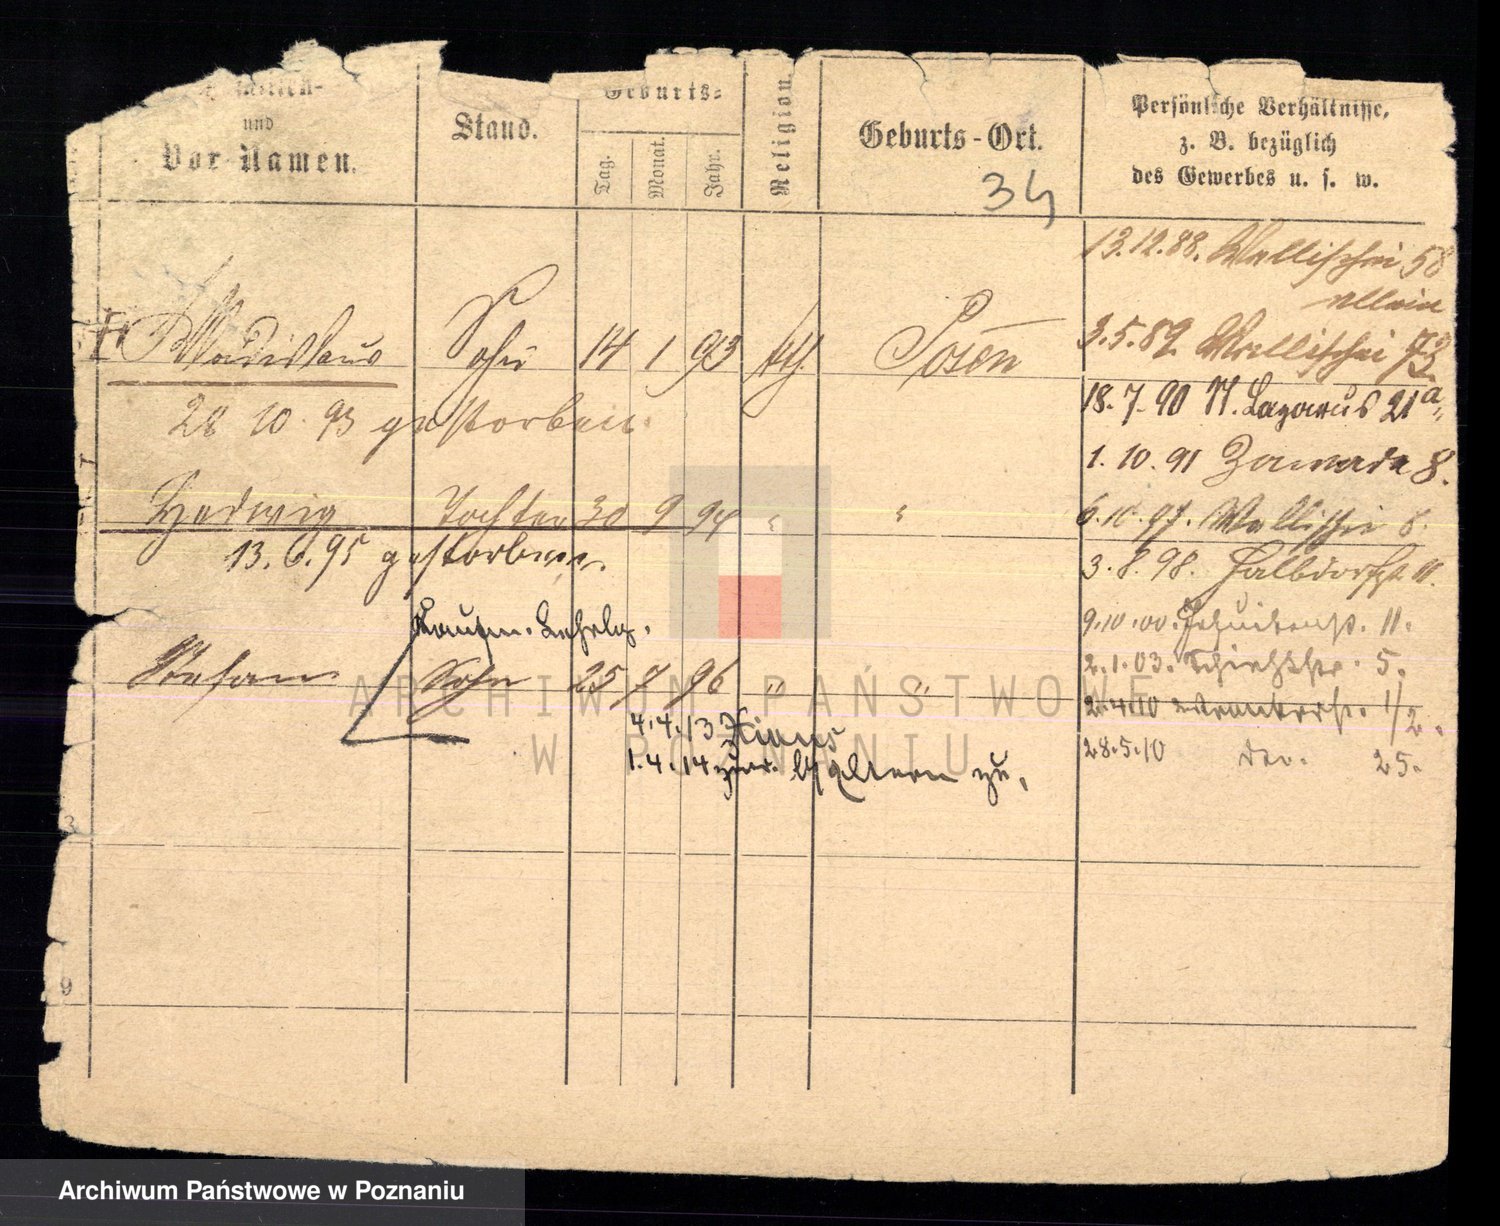 und
Vor-Namen.
Stand.
Geburts-
Tag.
Monat.
Jahr.
Religion.
Geburts-Ort.
34
Persönliche Verhältnisse,
z. B. bezüglich
des Gewerbes u. s. w.
13.12.88. Wallischei 58
allein
3.5.89. Wallischei 73
Wladislaus Sohn 14 1 93 kth. Posen
18.7.90 St. Lazarus 21a
28 10. 93 gestorben.
1.10.91 Zawade 8.
Hedwig Tochter 30 9 94 " "
6.10.97. Wallischei 8.
13.6.95 gestorben.
3.8.98. Halbdorfst. 11.
Kaufm. Lehrlg.
9.10.00. Jesuitenst. 11.
Stefan Sohn 25 7 96 " "
2.1.03. Schießstr. 5.
2.4.10 1/2.
4.4.13 Xions
28.5.10 25.
1.4.14 Eltern zu.
3
9
ARCHIWUM PAŃSTWOWE
W POZNANIU
Archiwum Państwowe w Poznaniu